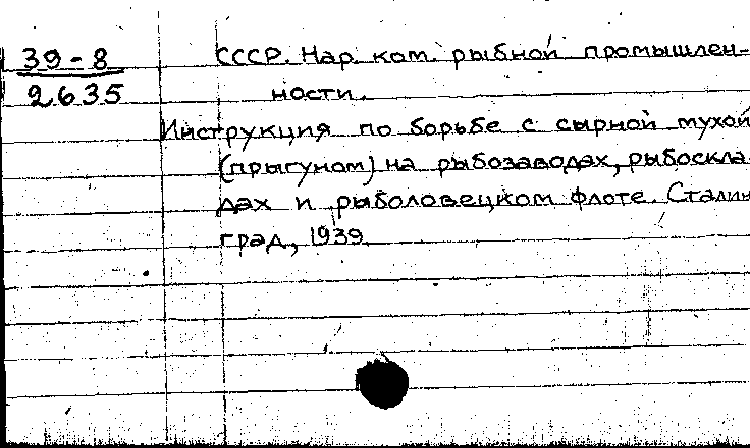 39-8 СССР. Нар. ком. рыбной промышлен-
2635 ности.
Инструкция по борьбе с сырной мухой
(прыгуном) на рыбозаводах, рыбоскла
дах и рыболовецком флоте. Сталин
град, 1939.